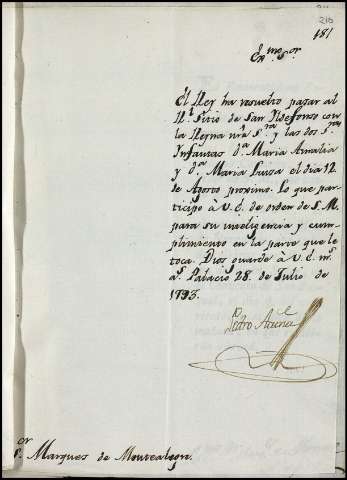 210
181
Ex.mo S.or
El Rey ha resuelto pasar al
R.l Sitio de San Ildefonso con
la Reyna nrâ S.ra y las dos S.ras
Infantas d.a Maria Amalia
y d.a Maria Luisa el dia 12
de Agosto proximo. Lo que par-
ticipo à V.E. de orden de S.M.
para su inteligencia y cum-
plimiento en la parte que le
toca. Dios guarde à V.E. m.s
a.s Palacio 28. de Julio de
1793.
Pedro
S.or Marques de Montealegre.